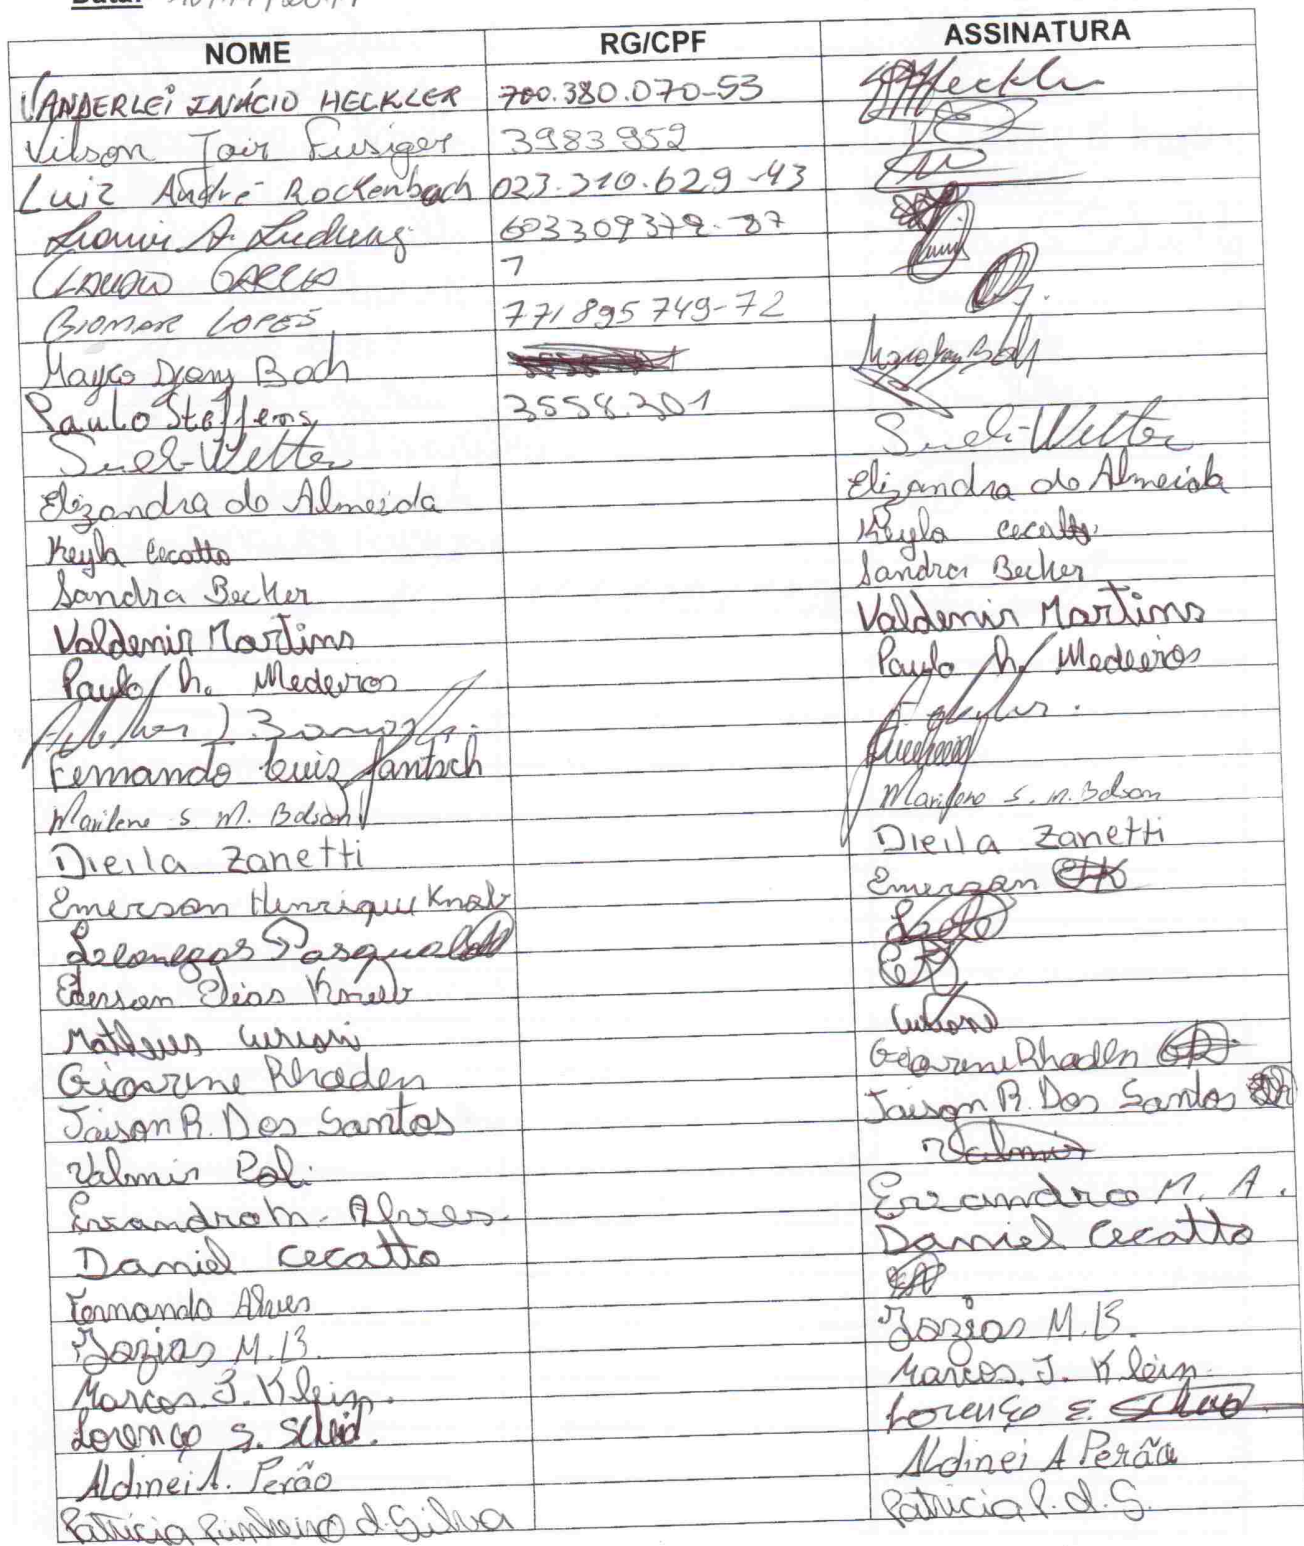 Data:
NOME RG/CPF ASSINATURA
VANDERLEI INÁCIO HECKLER 700.380.070-53 Heckler
Vilson Jair Fusiger 3983952
Luiz André Rockenbach 023.310.629-43
A. 603309379-87
CLAUDIO GARCIA 7
BIOMAR LOPES 771895749-72
Mayco Djony Bach
Paulo Steffens 3558.301
Sueli Welter Sueli Welter
Elizandra de Almeida Elizandra de Almeida
Keyla Cecatto Keyla Cecatto
Sandra Becker Sandra Becker
Valdemir Martins Valdemir Martins
Paulo h. Medeiros Paulo h. Medeiros
Fernando Luiz Jantsch
Marilene S. M. Bolson Marilene S. M. Bolson
Dieila Zanetti Dieila Zanetti
Emerson Henrique Knob Emerson EHK
Ederson Elias Knob
Matheus
Rhoden Rhoden
Jaison R. Dos Santos Jaison R. Dos Santos
Valmir Poli. Valmir
Evandro M. Alves. Evandro M. A.
Daniel Cecatto Daniel Cecatto
Fernando Alves
Jozias M.B. Jozias M.B.
Marcos. J. Klein. Marcos. J. Klein.
Lorenço S. Scheid. Lorenço S.
Aldinei A. Perão Aldinei A Perão
Patricia Pinheiro d. Silva Patricia P. d. S.